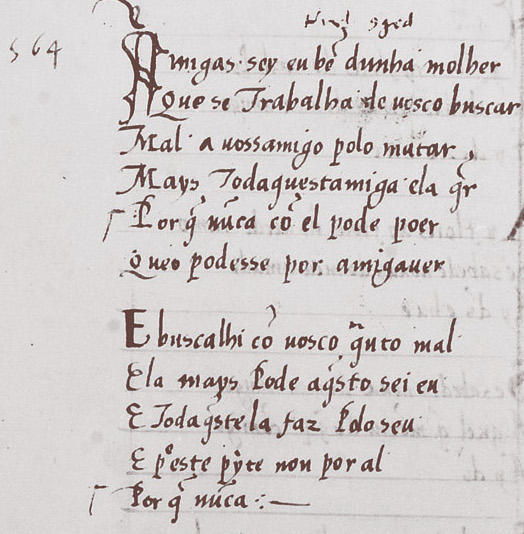 564
Amigas sey eu bẽ dunha molher
Que se Trabalha de uosco buscar
Mal a uossamigo polo matar,
Mays Todaquestamiga ela q̄r
Por q̄ nũca cõ el pode poer
Queo podesse por amigauer
E buscalhi cõ uosco quto mal
Ela mays pode aq̄sto sei eu
E Todaq̄stela faz pdo seu
E p̄este pȳte non por al
Por q̄ nũca :—